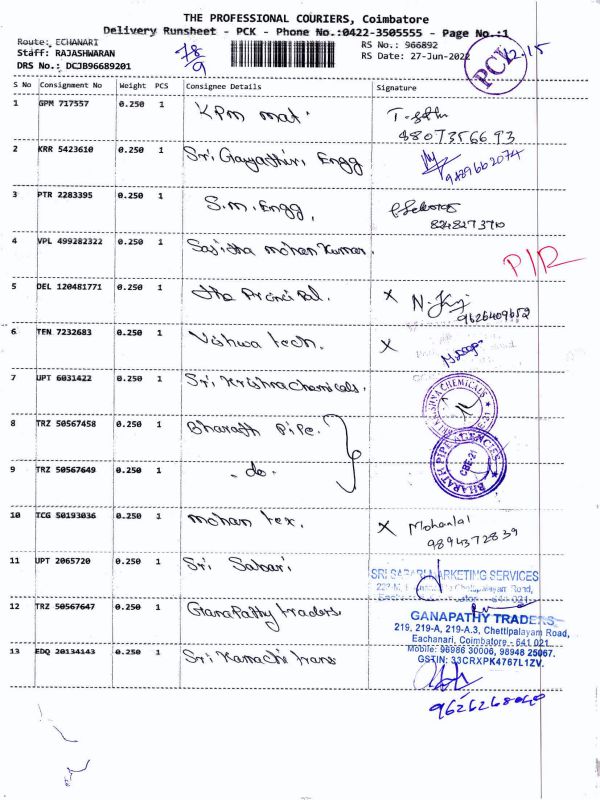 THE PROFESSIONAL COURIERS, Coimbatore
Delivery Runsheet - PCK - Phone No.:0422-3505555 - Page No.:1
Route: ECHANARI
Staff: RAJASHWARAN
DRS No.: DCJB96689201
78/9
RS No.: 966892
RS Date: 27-Jun-2022
PCK
12.15
S No Consignment No Weight PCS Consignee Details Signature
1 GPM 717557 0.250 1 KPM mat.
4807356693
2 KRR 5423610 0.250 1 Sri Gayathiri Engg
9489662074
3 PTR 2283395 0.250 1 S.M. Engg,
8248273710
4 VPL 499282322 0.250 1 Sasitha mohan Kumar.
P/R
5 DEL 120481771 0.250 1 the Principal. X
9626409652
6 TEN 7232683 0.250 1 Vishwa tech. X
7 UPT 6031422 0.250 1 Sri Krishna Chemicals.
SRI KRISHNA CHEMICALS
8 TRZ 50567458 0.250 1 Bharath Pipe.
BHARATH PIPE AGENCIES
CBE-21
9 TRZ 50567649 0.250 1 - do.
10 TCG 50193036 0.250 1 mohan tex. X Mohanlal
9894372839
11 UPT 2065720 0.250 1 Sri Sabari
SRI SABARI MARKETING SERVICES
Chettipalayam Road,
641 021
12 TRZ 50567647 0.250 1 GanaPathy traders
GANAPATHY TRADERS
219, 219-A, 219-A.3, Chettipalayam Road,
Eachanari, Coimbatore - 641 021
Mobile: 96986 30006, 98948 25067.
GSTIN: 33CRXPK4767L1ZV.
13 EDQ 20134143 0.250 1 Sri Kamachi trans
9626268040